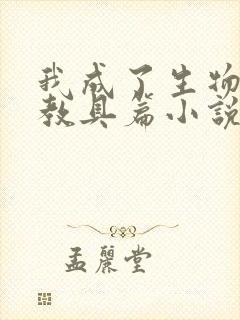 我成了生物
教具篇小說
孟麗堂